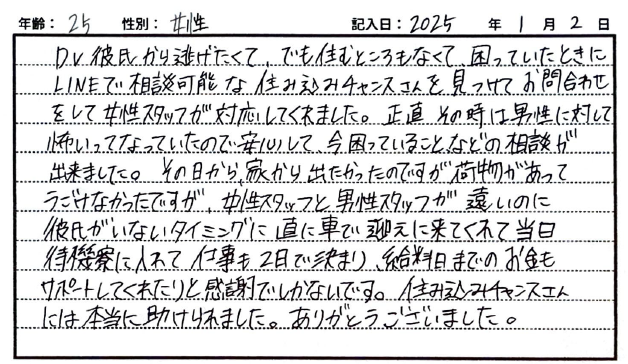 年齢： 25 性別： 女性 記入日： 2025 年 1 月 2 日
DV彼氏から逃げたくて、でも住むところもなくて、困っていたときに
LINEで相談可能な住み込みチャンスさんを見つけてお問合わせ
をして女性スタッフが対応してくれました。正直その時は男性に対して
怖いってなっていたので安心して、今困っていることなどの相談が
出来ました。その日から、家から出たかったのですが荷物があって
うごけなかったですが、女性スタッフと男性スタッフが遠いのに
彼氏がいないタイミングに直に車で迎えに来てくれて当日
待機寮に入れて仕事も2日で決まり、給料日までのお金も
サポートしてくれたりと感謝でしかないです。住み込みチャンスさん
には本当に助けられました。ありがとうございました。